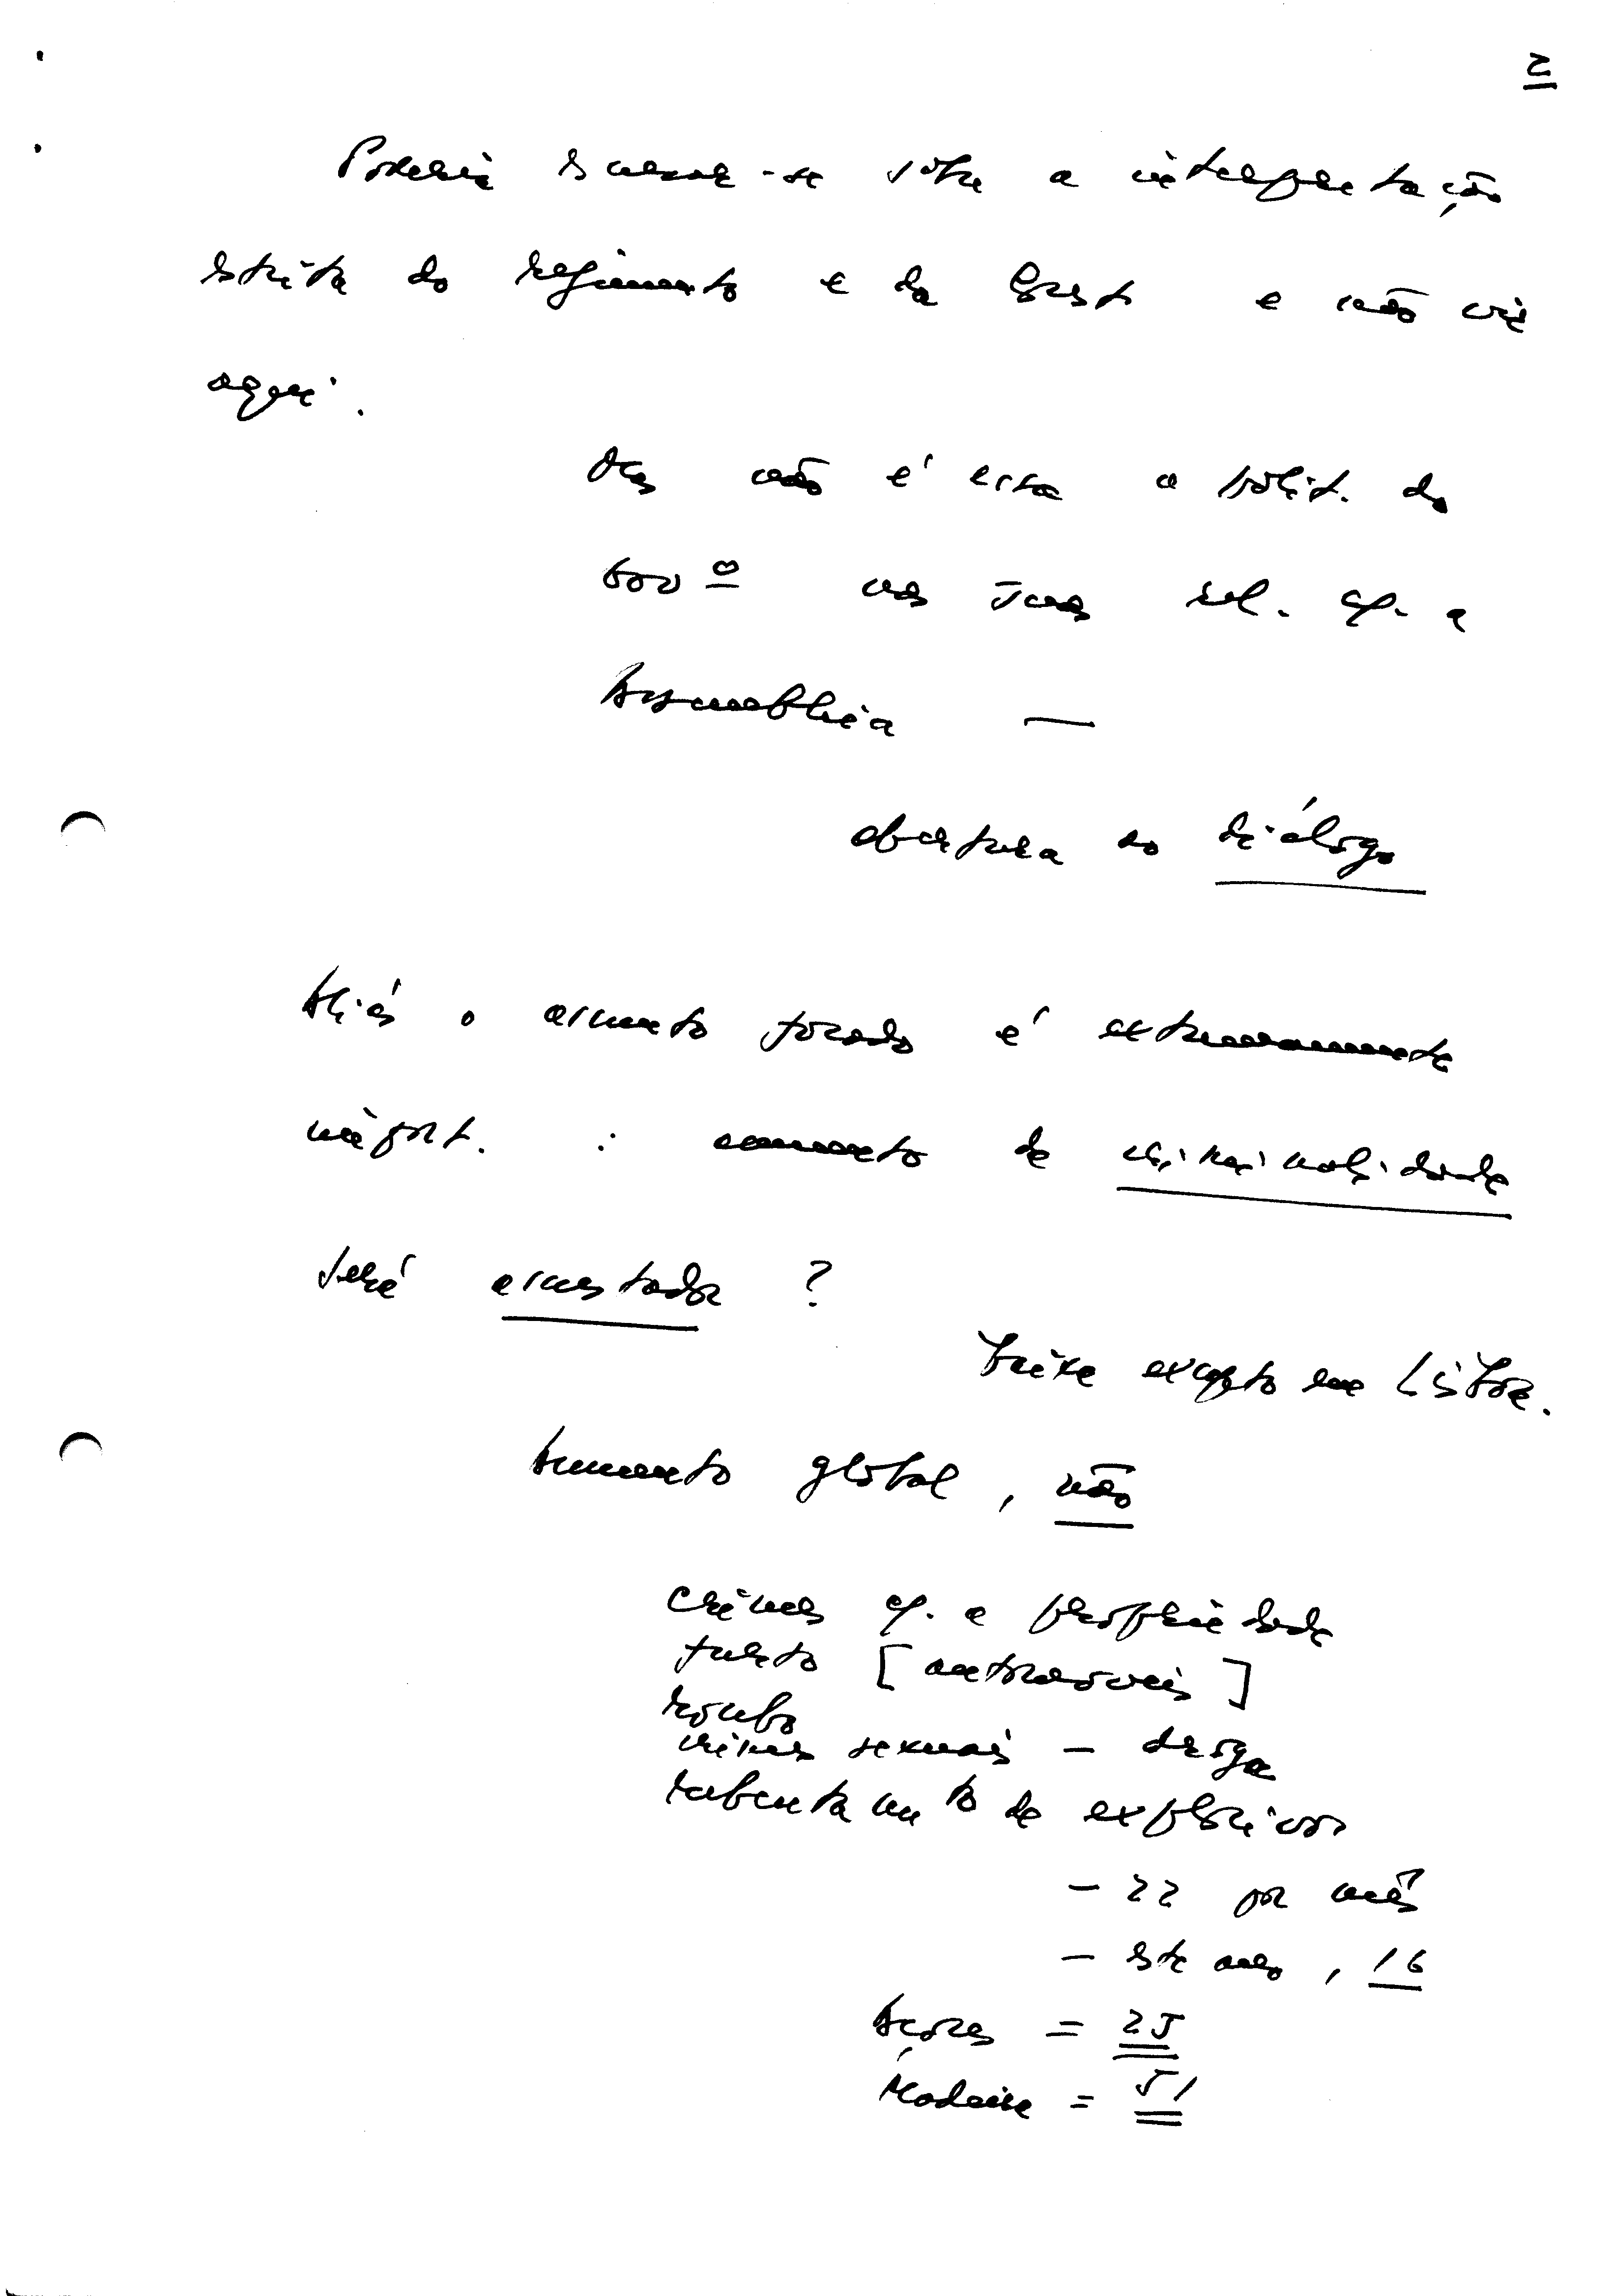 2
Poderia escusar-se sobre a interpretação
estrita do regimento e da Const e não vir
aqui.
Mas não é essa a polít. do
Govº nas suas rel. cf. a
Assembleia —
abertura ao diálogo
Aliás o assunto focado é extremamente
import. : aumento de criminalidade
será assustador ?
Baixa excepto em Lisboa.
Aumento global, não
crimes cf. a propriedade
furto [automóveis]
roubo
crimes sexuais – droga
rebentamento de explosivos
– 22 por mês
– este ano, 16
Açores = 25
Madeira = 51